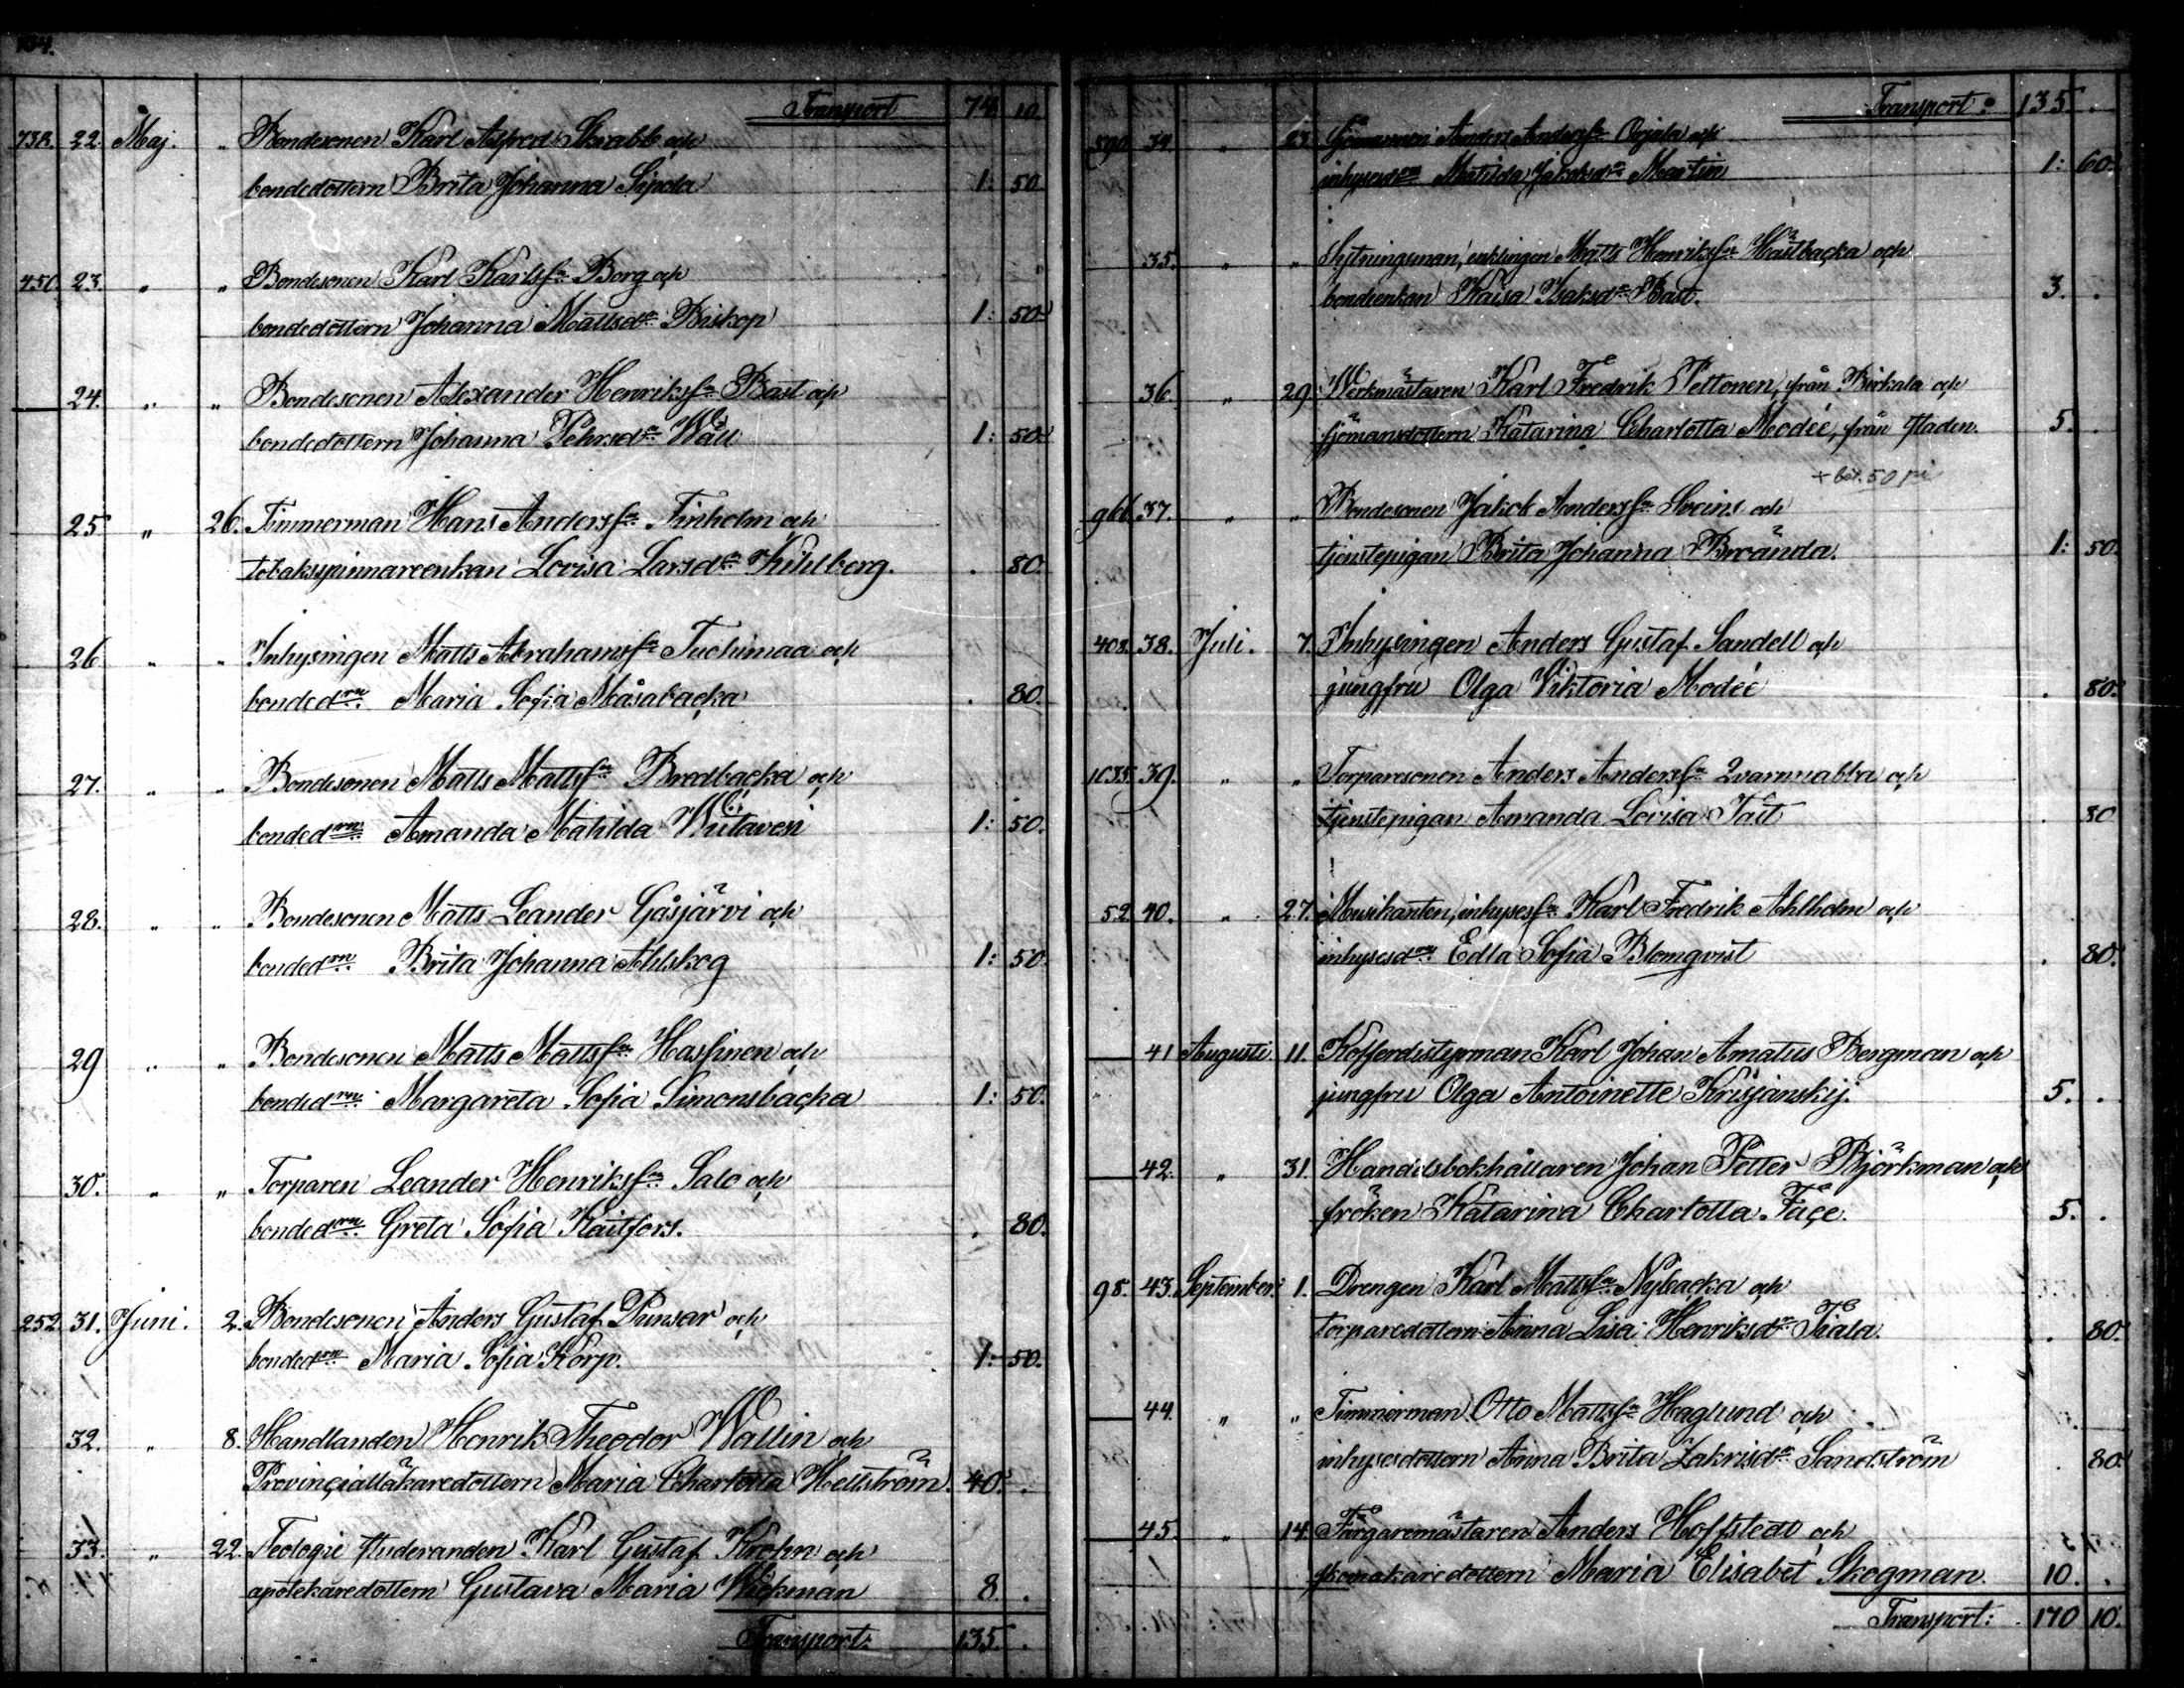 Transport 74 10
738. 22. Maj. „ Bondesonen Karl Alfred Skrabb och
bondedottern Brita Johanna Sipola 1: 50
450. 23. „ „ Bondesonen Karl Karlsson Borg och
bondedottern Johanna Mattsdr Biskop 1: 50
24. „ „ Bondesonen Alexander Henrikssn Bast och
bondedottern Johanna Pehrsdr Wäll 1: 50
25 „ 26. Timmerman Hans Anderssn Finholm och
tobaksspinnareenkan Lovisa Larsdr Kihlberg. . 80.
26. „ „ Inhysingen Matts Abrahamssn Tuchimaa och
bondedrn Maria Sofia Måsabacka . 80.
27. „ „ Bondesonen Matts Mattssn Bredbacka och
bondedrn Amanda Matilda Witaveri 1: 50.
28. „ „ Bondesonen Matts Leander Gåsjärvi och
bondedrn Brita Johanna Ahlskog 1: 50.
29 „ „ Bondesonen Matts Mattssn Hassinen och
bondedrn Margareta Sofia Simonsbacka 1: 50.
30. „ „ Torparen Leander Henrikssn Salo och
bondedrn Greta Sofia Kaitfors. . 80.
252. 31. Juni. 2. Bondesonen Anders Gustaf Dunsar och
bondedrn Maria Sofia Korp. 1: 50.
32. „ 8. Handlanden Henrik Theodor Wallin och
Provincialläkaredottern Maria Charlotta Hellström. 40. .
33. „ 22. Teologie studeranden Karl Gustaf Krohn och
apotekaredottern Gustava Maria Wickman 8. .
Transport: 135. .
Transport: 135 .
590 34. „ 23. Sjömannen Anders Anderssn Orjala och
inhysesdrn Matilda Jakobsdr Martin 1: 60.
35. „ „ Sytningsman, enklingen Matts Henrikssn Hästbacka och
bondeenkan Kaisa Isaksdr Bast. 3. .
36 „ 29. Werkmästaren Karl Fredrik Peltonen, från Birkala och
sjömansdottern Katarina Charlotta Modée, från staden. 5. .
+ bet. 50 pi
966. 37. „ „ Bondesonen Jakob Anderssn Sveins och
tjenstepigan Brita Johanna Broända. 1: 50.
408. 38. Juli. 7. Inhysingen Anders Gustaf Sandell och
jungfru Olga Viktoria Modée . 80.
1035. 39. „ „ Torparesonen Anders Anderssn Qvarnnabba och
tjenstepigan Amanda Lovisa Tast . 80
52. 40. „ 27. Musikanten, inhysessn Karl Fredrik Ahlholm och
inhysesdrn Edla Sofia Blomqvist . 80.
41 Augusti. 11. Kofferdistyrman Karl Johan Amatus Bergman och
jungfru Olga Antoinette Krisjanskij. 5. .
42. „ 31. Handelsbokhållaren Johan Petter Björkman och
fröken Katarina Charlotta Face. 5. .
98. 43. September. 1. Drengen Karl Mattssn Nybacka och
torparedottern Anna Lisa Henriksdr Tiala. . 80.
44. „ „ Timmerman Otto Mattssn Haglund och
inhysesdottern Anna Brita Zakrisdr Sandström . 80.
45. „ 14. Färgaremästaren Anders Hoffstedt och
skomakaredottern Maria Elisabet Skogman. 10. .
Transport: 170 10.